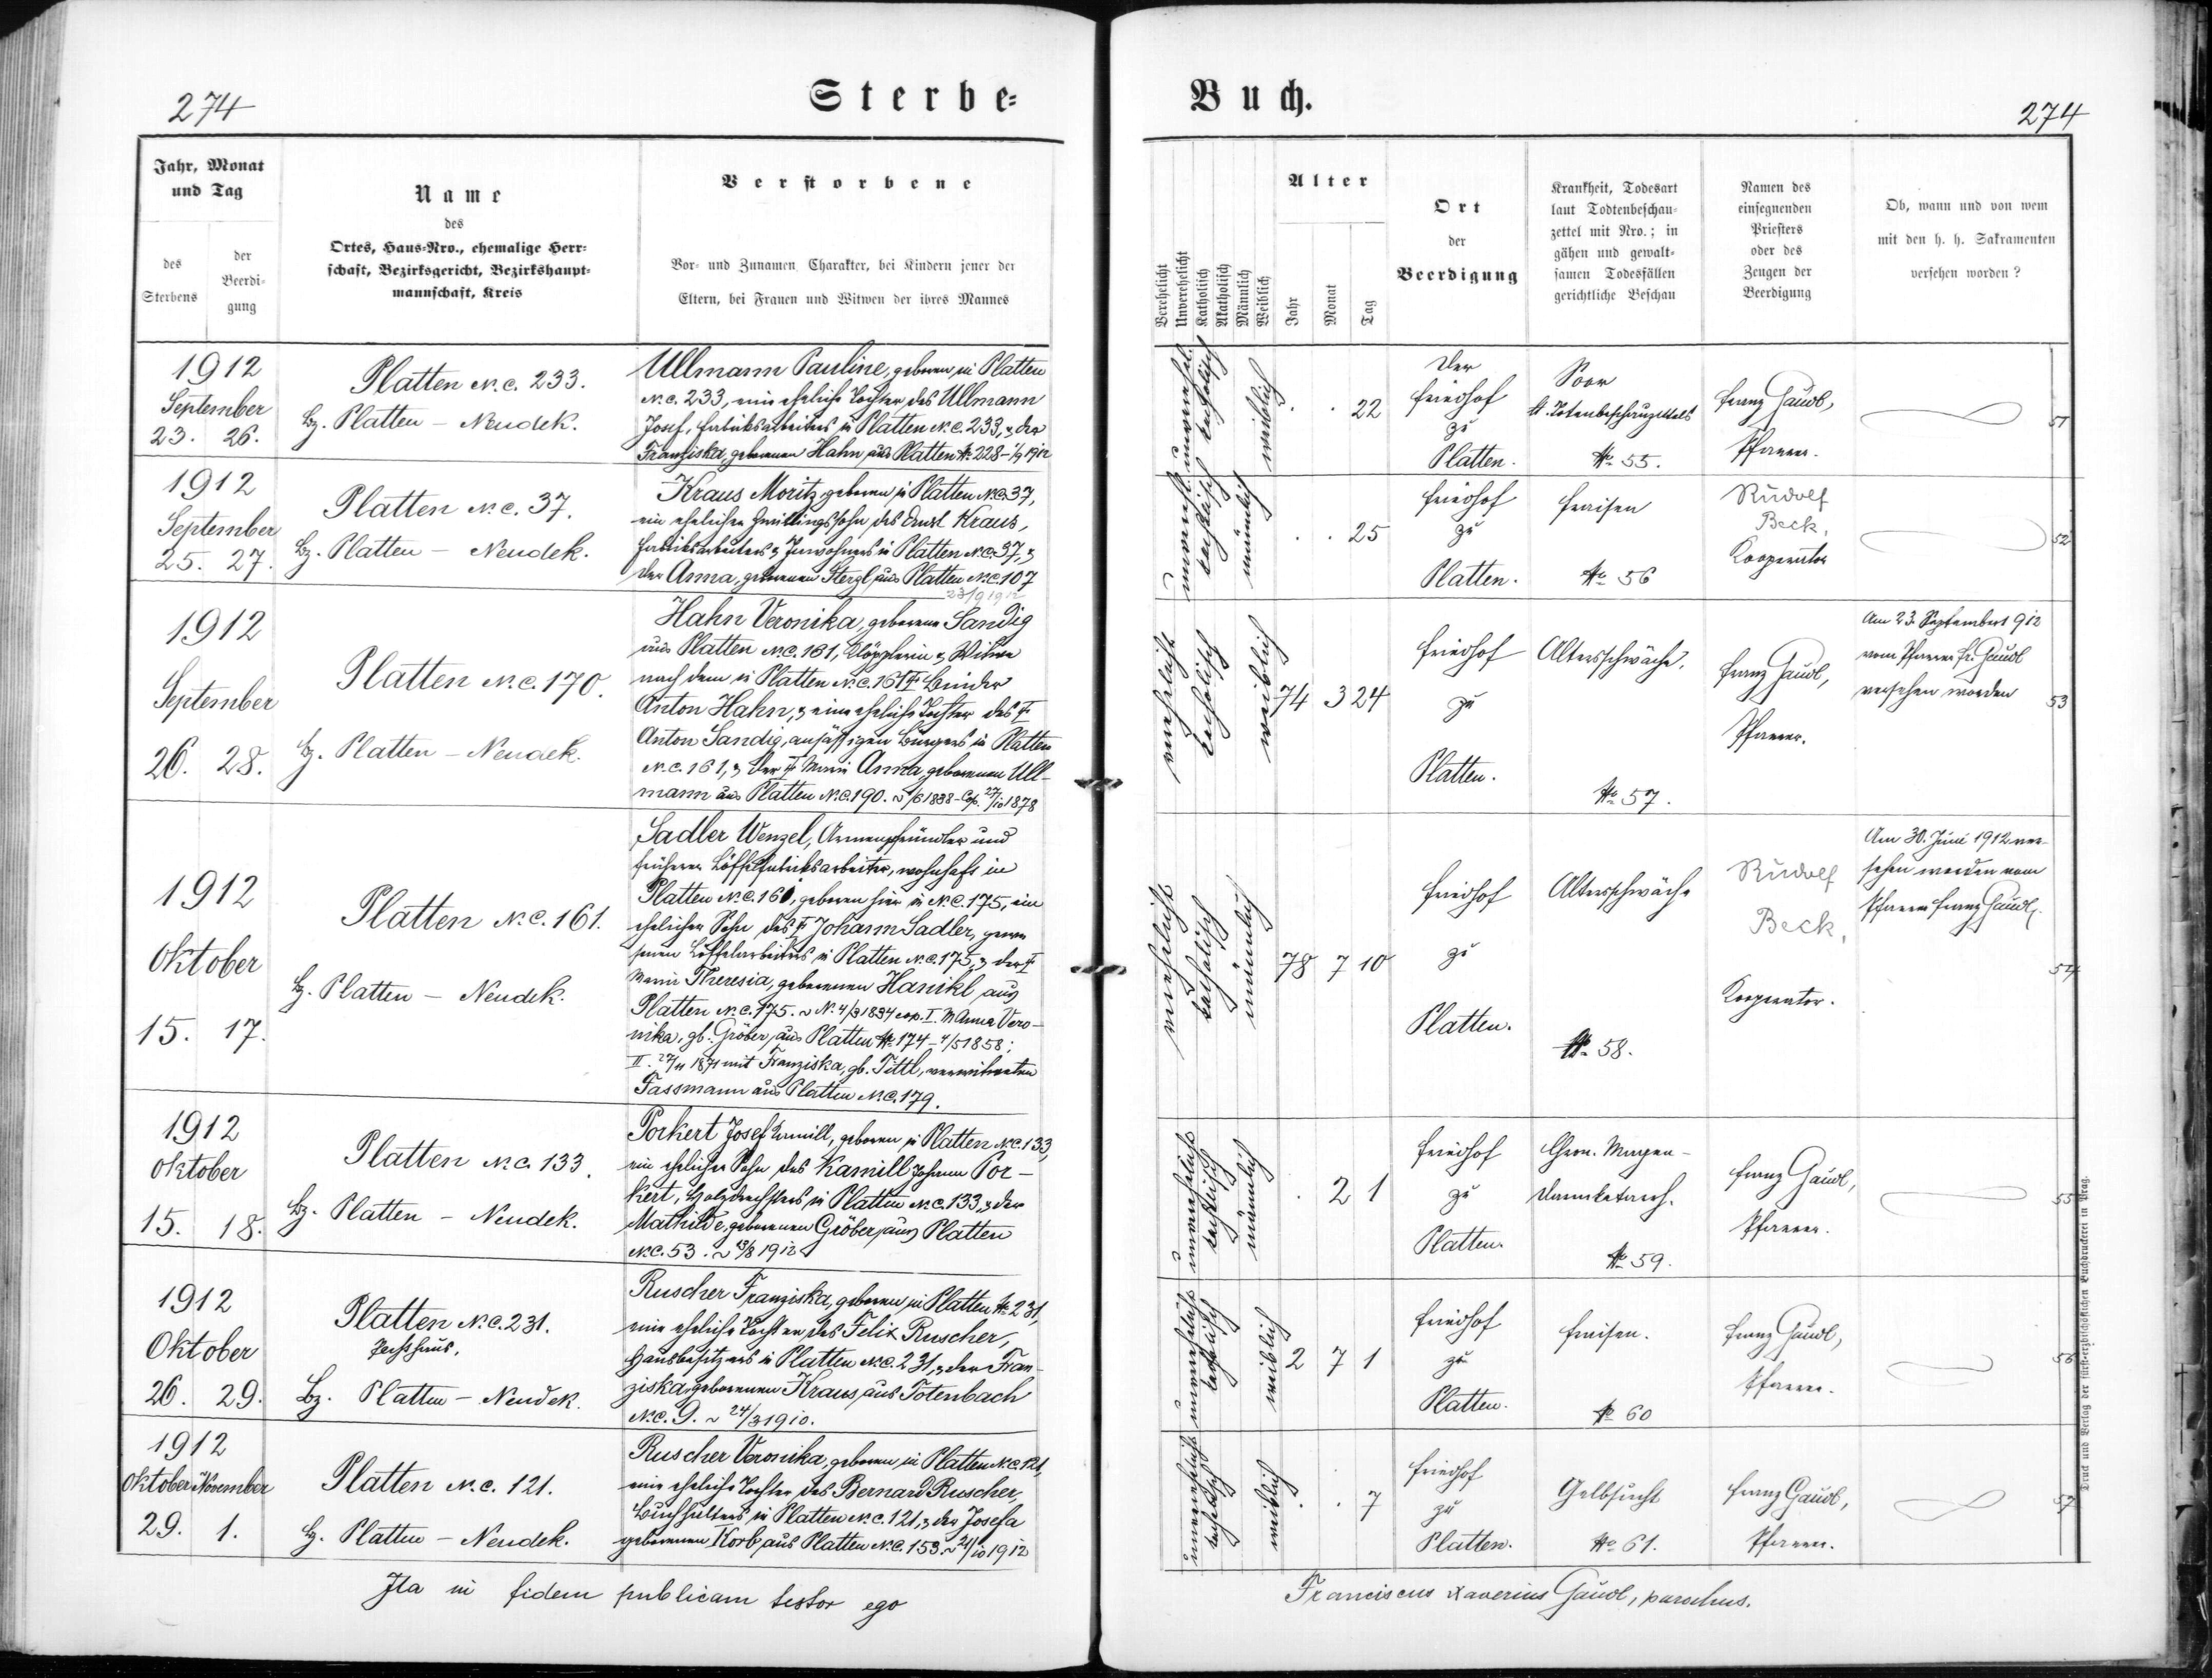 274
Sterbe=
Jahr, Monat
und Tag
des
Sterbens
der
Beerdi-
gung
Name
des
Ortes, Haus-Nro., ehemalige Herr-
schaft, Bezirksgericht, Bezirkshaupt-
mannschaft, Kreis
Verstorbene
Vor- und Zunamen Charakter, bei Kindern jener der
Eltern, bei Frauen und Witwen der ihres Mannes
1912
September
23. 26.
Platten N.C. 233.
Bz. Platten - Neudek.
Ullmann Pauline, geboren in Platten
N.C. 233, eine eheliche Tochter des Ullmann
Josef, Fabriksarbeiters in Platten N.C. 233, & der
Franziska, geborenen Hahn aus Platten No 228 - 1/9 1912
1912
September
25. 27.
Platten N.C. 37.
Bz. Platten - Neudek.
Kraus Moritz, geboren in Platten N.C. 37,
ein ehelicher Zwillingssohn des Ernst Kraus,
Fabriksarbeiters & Inwohners in Platten N.C. 37, &
der Anna, geborenen Stergl aus Platten N.C. 107
1912
September
26. 28.
Platten N.C. 170.
Bz. Platten - Neudek.
Hahn Veronika, geborene Sandig
aus Platten N.C. 161, Klöpplerin & Witwe
nach dem in Platten N.C. 161 † Binder
Anton Hahn, & eine eheliche Tochter des †
Anton Sandig, ansässigen Bürgers in Platten
N.C. 161, & der † Maria Anna, geborenen Ull-
mann aus Platten N.C. 190. 2/6 1838 - Cop. 27/10 1878
1912
Oktober
15. 17.
Platten N.C. 161.
Bz. Platten - Neudek.
Sadler Wenzel, Armenpfründler und
früherer Löffelfabriksarbeiter, wohnhaft in
Platten N.C. 161, geboren hier in N.C. 175, ein
ehelicher Sohn des † Johann Sadler, gewe-
senen Löffelarbeiters in Platten N.C. 175, & der †
Maria Theresia, geborenen Hanikl aus
Platten N.C. 175. N. 4/3 1834 cop. I. M. Anna Vero-
nika, gb. Gröber, aus Platten No 174 - 4/5 1858;
II. 27/11 1871 mit Franziska, gb. Tittl, verwitweten
Fassmann aus Platten N.C. 179.
1912
Oktober
15. 18.
Platten N.C. 133.
Bz. Platten - Neudek.
Porkert Josef Kamill, geboren in Platten N.C. 133,
ein ehelicher Sohn des Kamill Johann Por-
kert, Holzdrechslers in Platten N.C. 133, & der
Mathilde, geborenen Gröber, aus Platten
N.C. 53. 13/8 1912
1912
Oktober
26. 29.
Platten N.C. 231.
Bz. Platten - Neudek.
Ruscher Franziska, geboren in Platten No 231,
eine eheliche Tochter des Felix Ruscher,
Hausbesitzers in Platten N.C. 231, & der Fran-
ziska, geborenen Kraus, aus Totenbach
N.C. 9. 24/3 1910.
1912
Oktober November
29. 1.
Platten N.C. 121.
Bz. Platten - Neudek.
Ruscher Veronika, geboren in Platten N.C. 121,
eine eheliche Tochter des Bernard Ruscher,
Buchhalters in Platten N.C. 121, & der Josefa
geborenen Korb, aus Platten N.C. 153. 21/10 1912
Ita in fidem publicam testor ego
Buch.
274
Verehelicht
Unverehelicht
Katholisch
Akatholisch
Männlich
Weiblich
Alter
Jahr
Monat
Tag
Ort
der
Beerdigung
Krankheit, Todesart
laut Todtenbeschau-
zettel mit Nro.; in
gähen und gewalt-
samen Todesfällen
gerichtliche Beschau
Namen des
einsegnenden
Priesters
oder des
Zeugen der
Beerdigung
Ob, wann und von wem
mit den h. h. Sakramenten
versehen worden?
unverehel.
katholisch
weiblich
22
Der
Friedhof
zu
Platten.
Soor
lt. Totenbeschauzettels
No 55.
Franz Gaudl,
Pfarrer.
51
unverehl.
katholisch
männlich
25
Friedhof
zu
Platten.
Fraisen
No 56
Rudolf
Beck,
Kooperator
52
verehelicht
katholisch
weiblich
74 3 24
Friedhof
zu
Platten.
Altersschwäche.
No 57.
Franz Gaudl,
Pfarrer.
Am 23. September 1912
vom Pfarrer Fr. Gaudl
versehen worden
53
verehelicht
katholisch
männlich
78 7 10
Friedhof
zu
Platten.
Altersschwäche
No 58.
Rudolf
Beck,
Kooperator.
Am 30. Juni 1912 ver-
sehen worden vom
Pfarrer Franz Gaudl.
54
unverehelicht
katholisch
männlich
2 1
Friedhof
zu
Platten.
Chron. Magen-
darmkatarrh.
No 59.
Franz Gaudl,
Pfarrer.
55
unverehelicht
katholisch
weiblich
2 7 1
Friedhof
zu
Platten.
Fraisen.
No 60
Franz Gaudl,
Pfarrer.
56
unverehelicht
katholisch
weiblich
7
Friedhof
zu
Platten.
Gelbsucht
No 61.
Franz Gaudl,
Pfarrer.
57
Franciscus Xaverius Gaudl, parochus.
Druck und Verlag der fürst-erzbischöflichen Buchdruckerei in Prag.